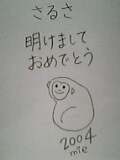 さるさ
明けまして
おめでとう
2004
mie